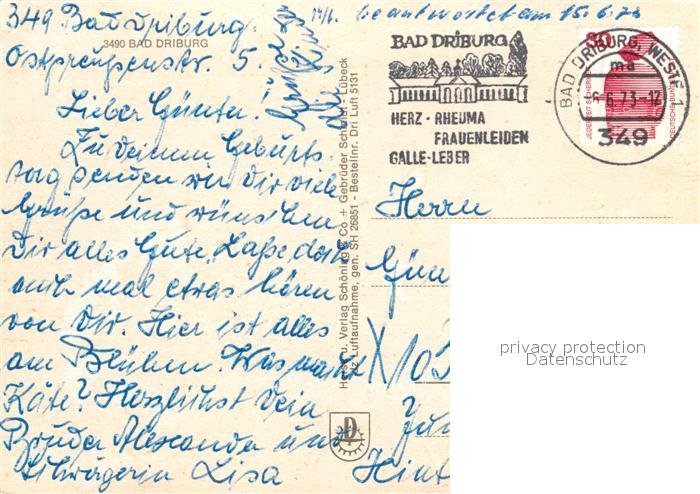 349 Bad Driburg.
3490 BAD DRIBURG
Ostpreussenstr. 5.
14/6. beantwortet am 15.6.73
Lieber Günter!
Zu deinem Geburts-
tag senden wir Dir viele
Grüße und wünschen
Dir alles Gute. Laße doch
auch mal etwas hören
von Dir. Hier ist alles
am Blühen. Was macht
Käte? Herzlichst Dein
Bruder Alexander und
Schwägerin Lisa.
Herst. u. Verlag Schöning & Co + Gebrüder Schmidt - Lübeck
Luftaufnahme, gen. SH 26851 - Bestellnr. Dri Luft 5131
BAD DRIBURG
HERZ · RHEUMA
FRAUENLEIDEN
GALLE-LEBER
BAD DRIBURG, WESTF
ma
6.73-12
349
30
JEDERZEIT SICHERHEIT
DEUTSCHE BUNDESPOST
Herrn
Gün
X 103
Hint
privacy protection
Datenschutz